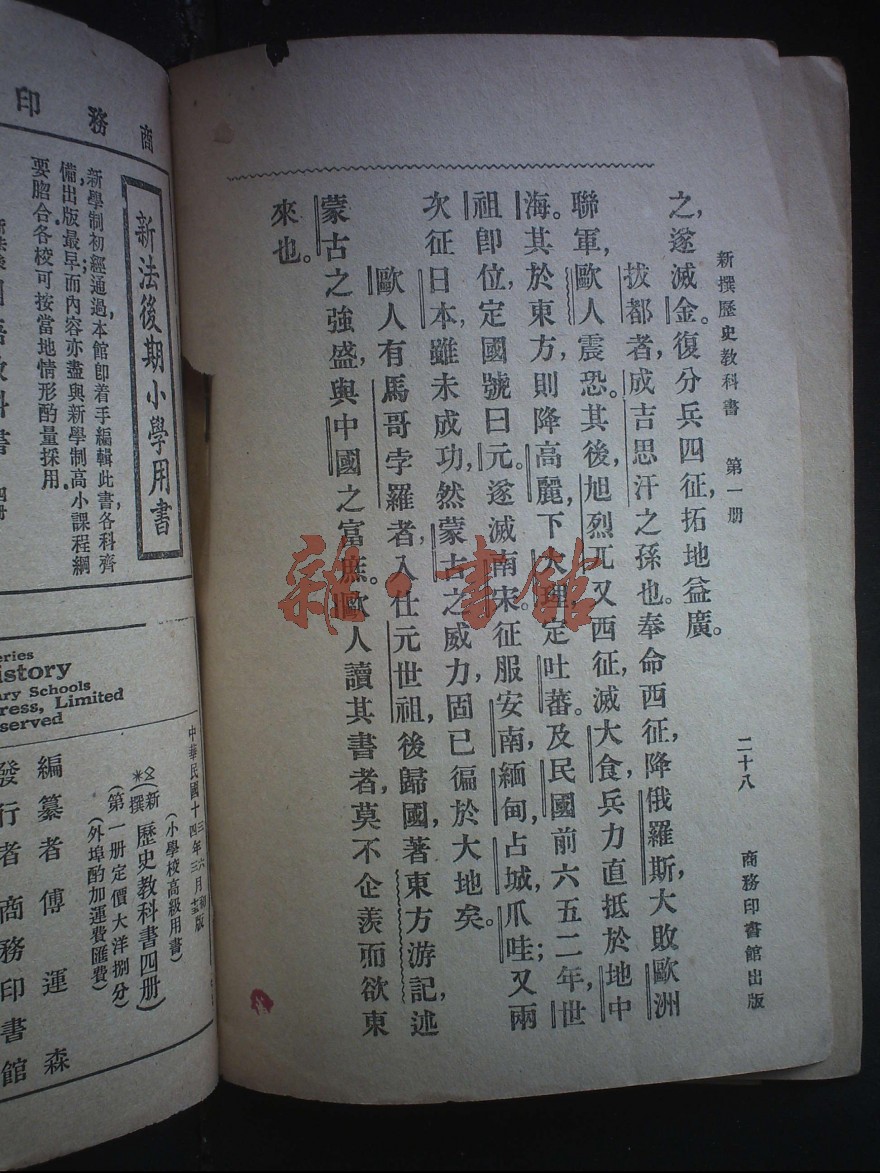 新撰歷史教科書 第一册 二十八 商務印書館出版
之，遂滅金。復分兵四征，拓地益廣。
拔都者，成吉思汗之孫也。奉命西征，降俄羅斯，大敗歐洲
聯軍，歐人震恐。其後，旭烈兀又西征，滅大食，兵力直抵於地中
海。其於東方，則降高麗，下大理，定吐蕃。及民國前六五二年，世
祖卽位，定國號曰元。遂滅南宋。征服安南，緬甸，占城，爪哇；又兩
次征日本，雖未成功，然蒙古之威力，固已徧於大地矣。
歐人有馬哥孛羅者，入仕元世祖，後歸國，著東方游記，述
蒙古之強盛，與中國之富庶。歐人讀其書者，莫不企羨而欲東
來也。
雜·書館
商務印
新法後期小學用書
新學制初經通過，本館卽着手編輯此書，各科齊
備，出版最早；而內容亦盡與新學制高小課程綱
要脗合，各校可按當地情形酌量採用。
教科書 四册
eries
istory
ary Schools
ress, Limited
served
中華民國十
(小學校高級用書)
新撰 歷史教科書四册)
(第一册定價大洋捌分)
(外埠酌加運費匯費)
編纂者 傅運森
發行者 商務印書館